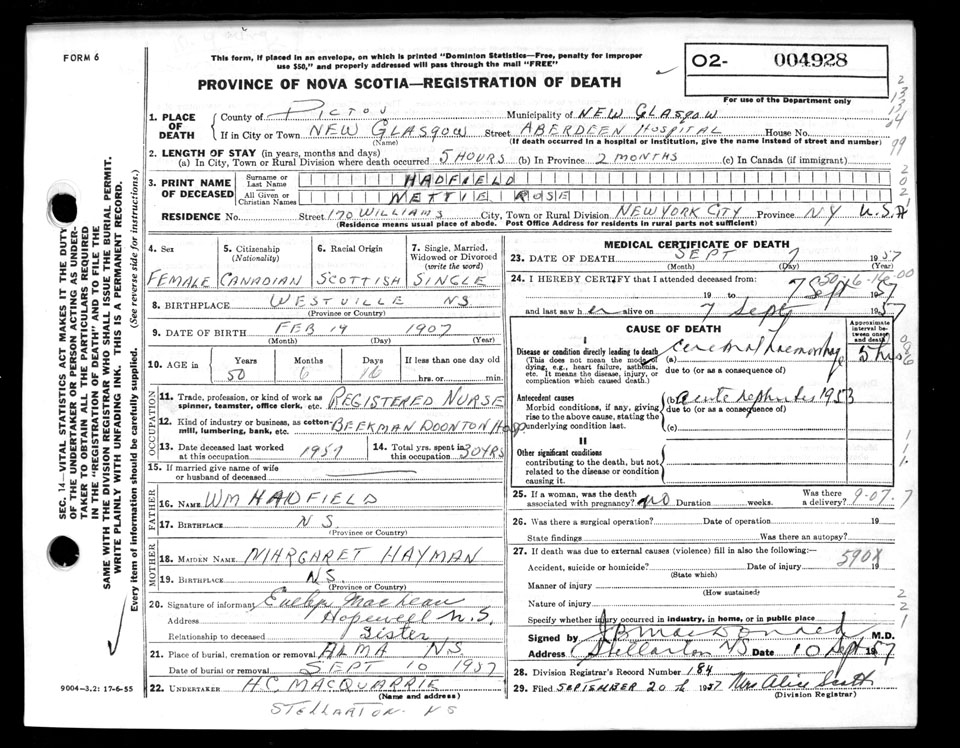 FORM 6
This form, if placed in an envelope, on which is printed "Dominion Statistics—Free, penalty for improper
use $50," and properly addressed will pass through the mail "FREE"
O2- 004928
For use of the Department only
PROVINCE OF NOVA SCOTIA—REGISTRATION OF DEATH
SEC. 14—VITAL STATISTICS ACT MAKES IT THE DUTY
OF THE UNDERTAKER OR PERSON ACTING AS UNDER-
TAKER TO OBTAIN ALL THE PARTICULARS REQUIRED
IN THE "REGISTRATION OF DEATH" AND TO FILE THE
SAME WITH THE DIVISION REGISTRAR WHO SHALL ISSUE THE BURIAL PERMIT.
WRITE PLAINLY WITH UNFADING INK. THIS IS A PERMANENT RECORD.
Every item of information should be carefully supplied. (See reverse side for instructions.)
9004—3.2: 17-6-55
1. PLACE OF DEATH
County of PICTOU Municipality of NEW GLASGOW
If in City or Town NEW GLASGOW Street ABERDEEN HOSPITAL House No.
(Name) (If death occurred in a hospital or institution, give the name instead of street and number)
2. LENGTH OF STAY (in years, months and days)
(a) In City, Town or Rural Division where death occurred 5 HOURS (b) In Province 2 MONTHS (c) In Canada (if immigrant)
3. PRINT NAME OF DECEASED
Surname or Last Name HADFIELD
All Given or Christian Names NETTIE ROSE
RESIDENCE No. Street 170 WILLIAMS City, Town or Rural Division NEW YORK CITY Province NY U.S.A
(Residence means usual place of abode. Post Office Address for residents in rural parts not sufficient)
4. Sex 5. Citizenship (Nationality) 6. Racial Origin 7. Single, Married, Widowed or Divorced (write the word)
FEMALE CANADIAN SCOTTISH SINGLE
8. BIRTHPLACE WESTVILLE NS
(Province or Country)
9. DATE OF BIRTH FEB 19 1907
(Month) (Day) (Year)
10. AGE in Years Months Days If less than one day old
50 6 16 hrs. or min.
OCCUPATION
11. Trade, profession, or kind of work as spinner, teamster, office clerk, etc. REGISTERED NURSE
12. Kind of industry or business, as cotton-mill, lumbering, bank, etc. BEEKMAN DOONTON Hosp.
13. Date deceased last worked at this occupation 1957 14. Total yrs. spent in this occupation 30 YRS
15. If married give name of wife or husband of deceased
FATHER
16. NAME WM HADFIELD
17. BIRTHPLACE N S.
(Province or Country)
MOTHER
18. MAIDEN NAME MARGARET HAYMAN
19. BIRTHPLACE NS.
(Province or Country)
20. Signature of informant Evelyn MacLean
Address Hopewell N.S.
Relationship to deceased Sister
21. Place of burial, cremation or removal ALMA NS
Date of burial or removal SEPT 10 1957
22. UNDERTAKER H.C. MACQUARRIE
(Name and address)
STELLARTON. NS
MEDICAL CERTIFICATE OF DEATH
23. DATE OF DEATH SEPT 7 1957
(Month) (Day) (Year)
24. I HEREBY CERTIFY that I attended deceased from:
19 to 7 Sept 1957
50-6-16-00
and last saw her alive on 7 Sept 1957
CAUSE OF DEATH
Approximate interval between onset and death
I
Disease or condition directly leading to death
(This does not mean the mode of dying, e.g., heart failure, asthenia, etc. It means the disease, injury, or complication which caused death.)
(a) cerebral haemorrhage 5 hrs
due to (or as a consequence of)
Antecedent causes
Morbid conditions, if any, giving rise to the above cause, stating the underlying condition last.
(b) acute nephritis 1953
due to (or as a consequence of)
(c)
II
Other significant conditions
contributing to the death, but not related to the disease or condition causing it.
25. If a woman, was the death associated with pregnancy? no Duration weeks. Was there a delivery?
9-07.7
26. Was there a surgical operation? Date of operation 19
State findings Was there an autopsy?
27. If death was due to external causes (violence) fill in also the following:—
590X
Accident, suicide or homicide? Date of injury 19
(State which)
Manner of injury
(How sustained)
Nature of injury
Specify whether injury occurred in industry, in home, or in public place
Signed by J B MacDonald M.D.
Address Stellarton NS Date 10 Sept 57
28. Division Registrar's Record Number 184
29. Filed SEPTEMBER 20th 1957 Mrs Alice Scott
(Division Registrar)